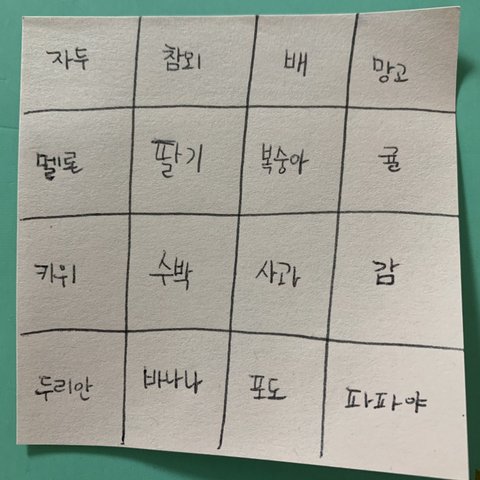 자두 참외 배 망고
멜론 딸기 복숭아 귤
키위 수박 사과 감
두리안 바나나 포도 파파야